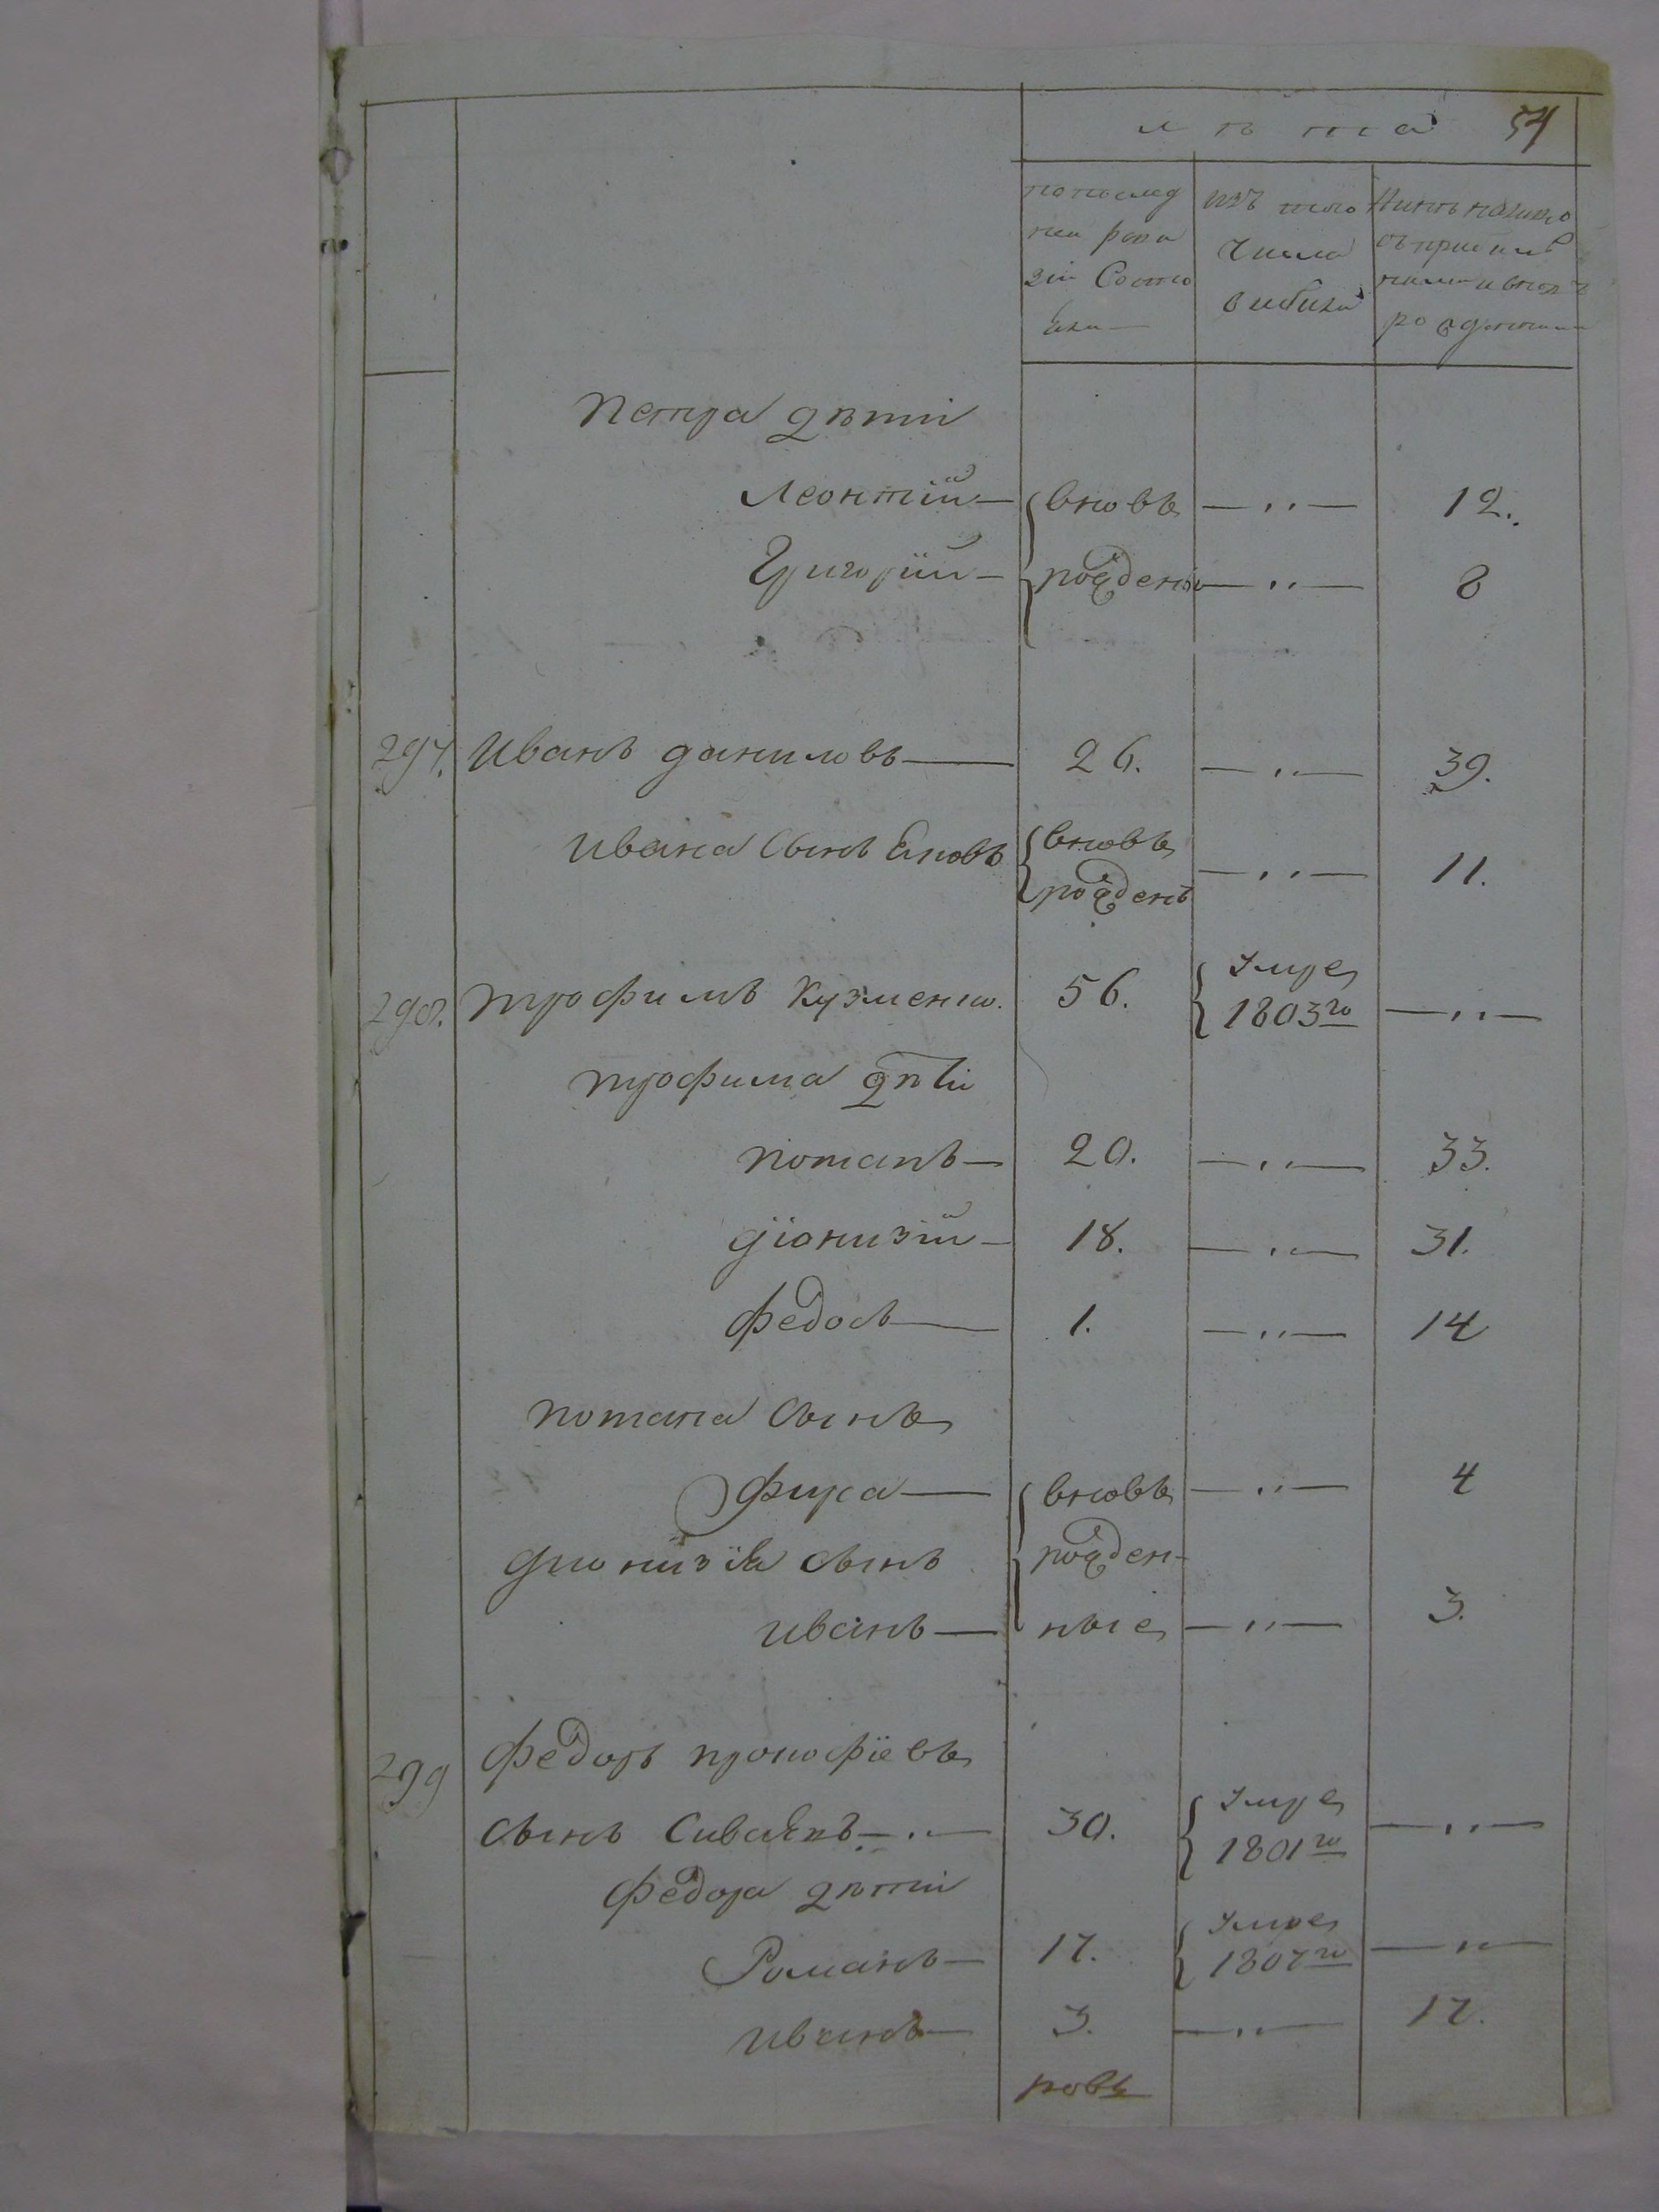 лѣта 54
попослед
ней реви
зіи Состо
яли
изъ того
числа
выбыло
Нынѣ налицо
съ
рожденными
Петра дѣти
Леонтій — вновь — „ — 12.
Григорій — рожденно — „ — 8
297. Иванъ даниловъ — 26. — „ — 39.
Ивана Сынъ Яковъ вновь
рожденъ — „ — 11.
298. трофимъ Кузменко. 56. Умре
1803го — „ —
трофима дѣти
потапъ — 20. — „ — 33.
діонизій — 18. — „ — 31.
федосъ — 1. — „ — 14
потапа Сынъ
Фирса — вновь — „ — 4
дионизія сынъ рожден-
иванъ — ные — „ — 3.
299 федоръ прокофіевъ
сынъ Сивакъ — . — 30. Умре
1801го — „ —
федора дѣти
Романъ — 17. Умре
1807го — „ —
иванъ — 3. — „ — 17.
новъ